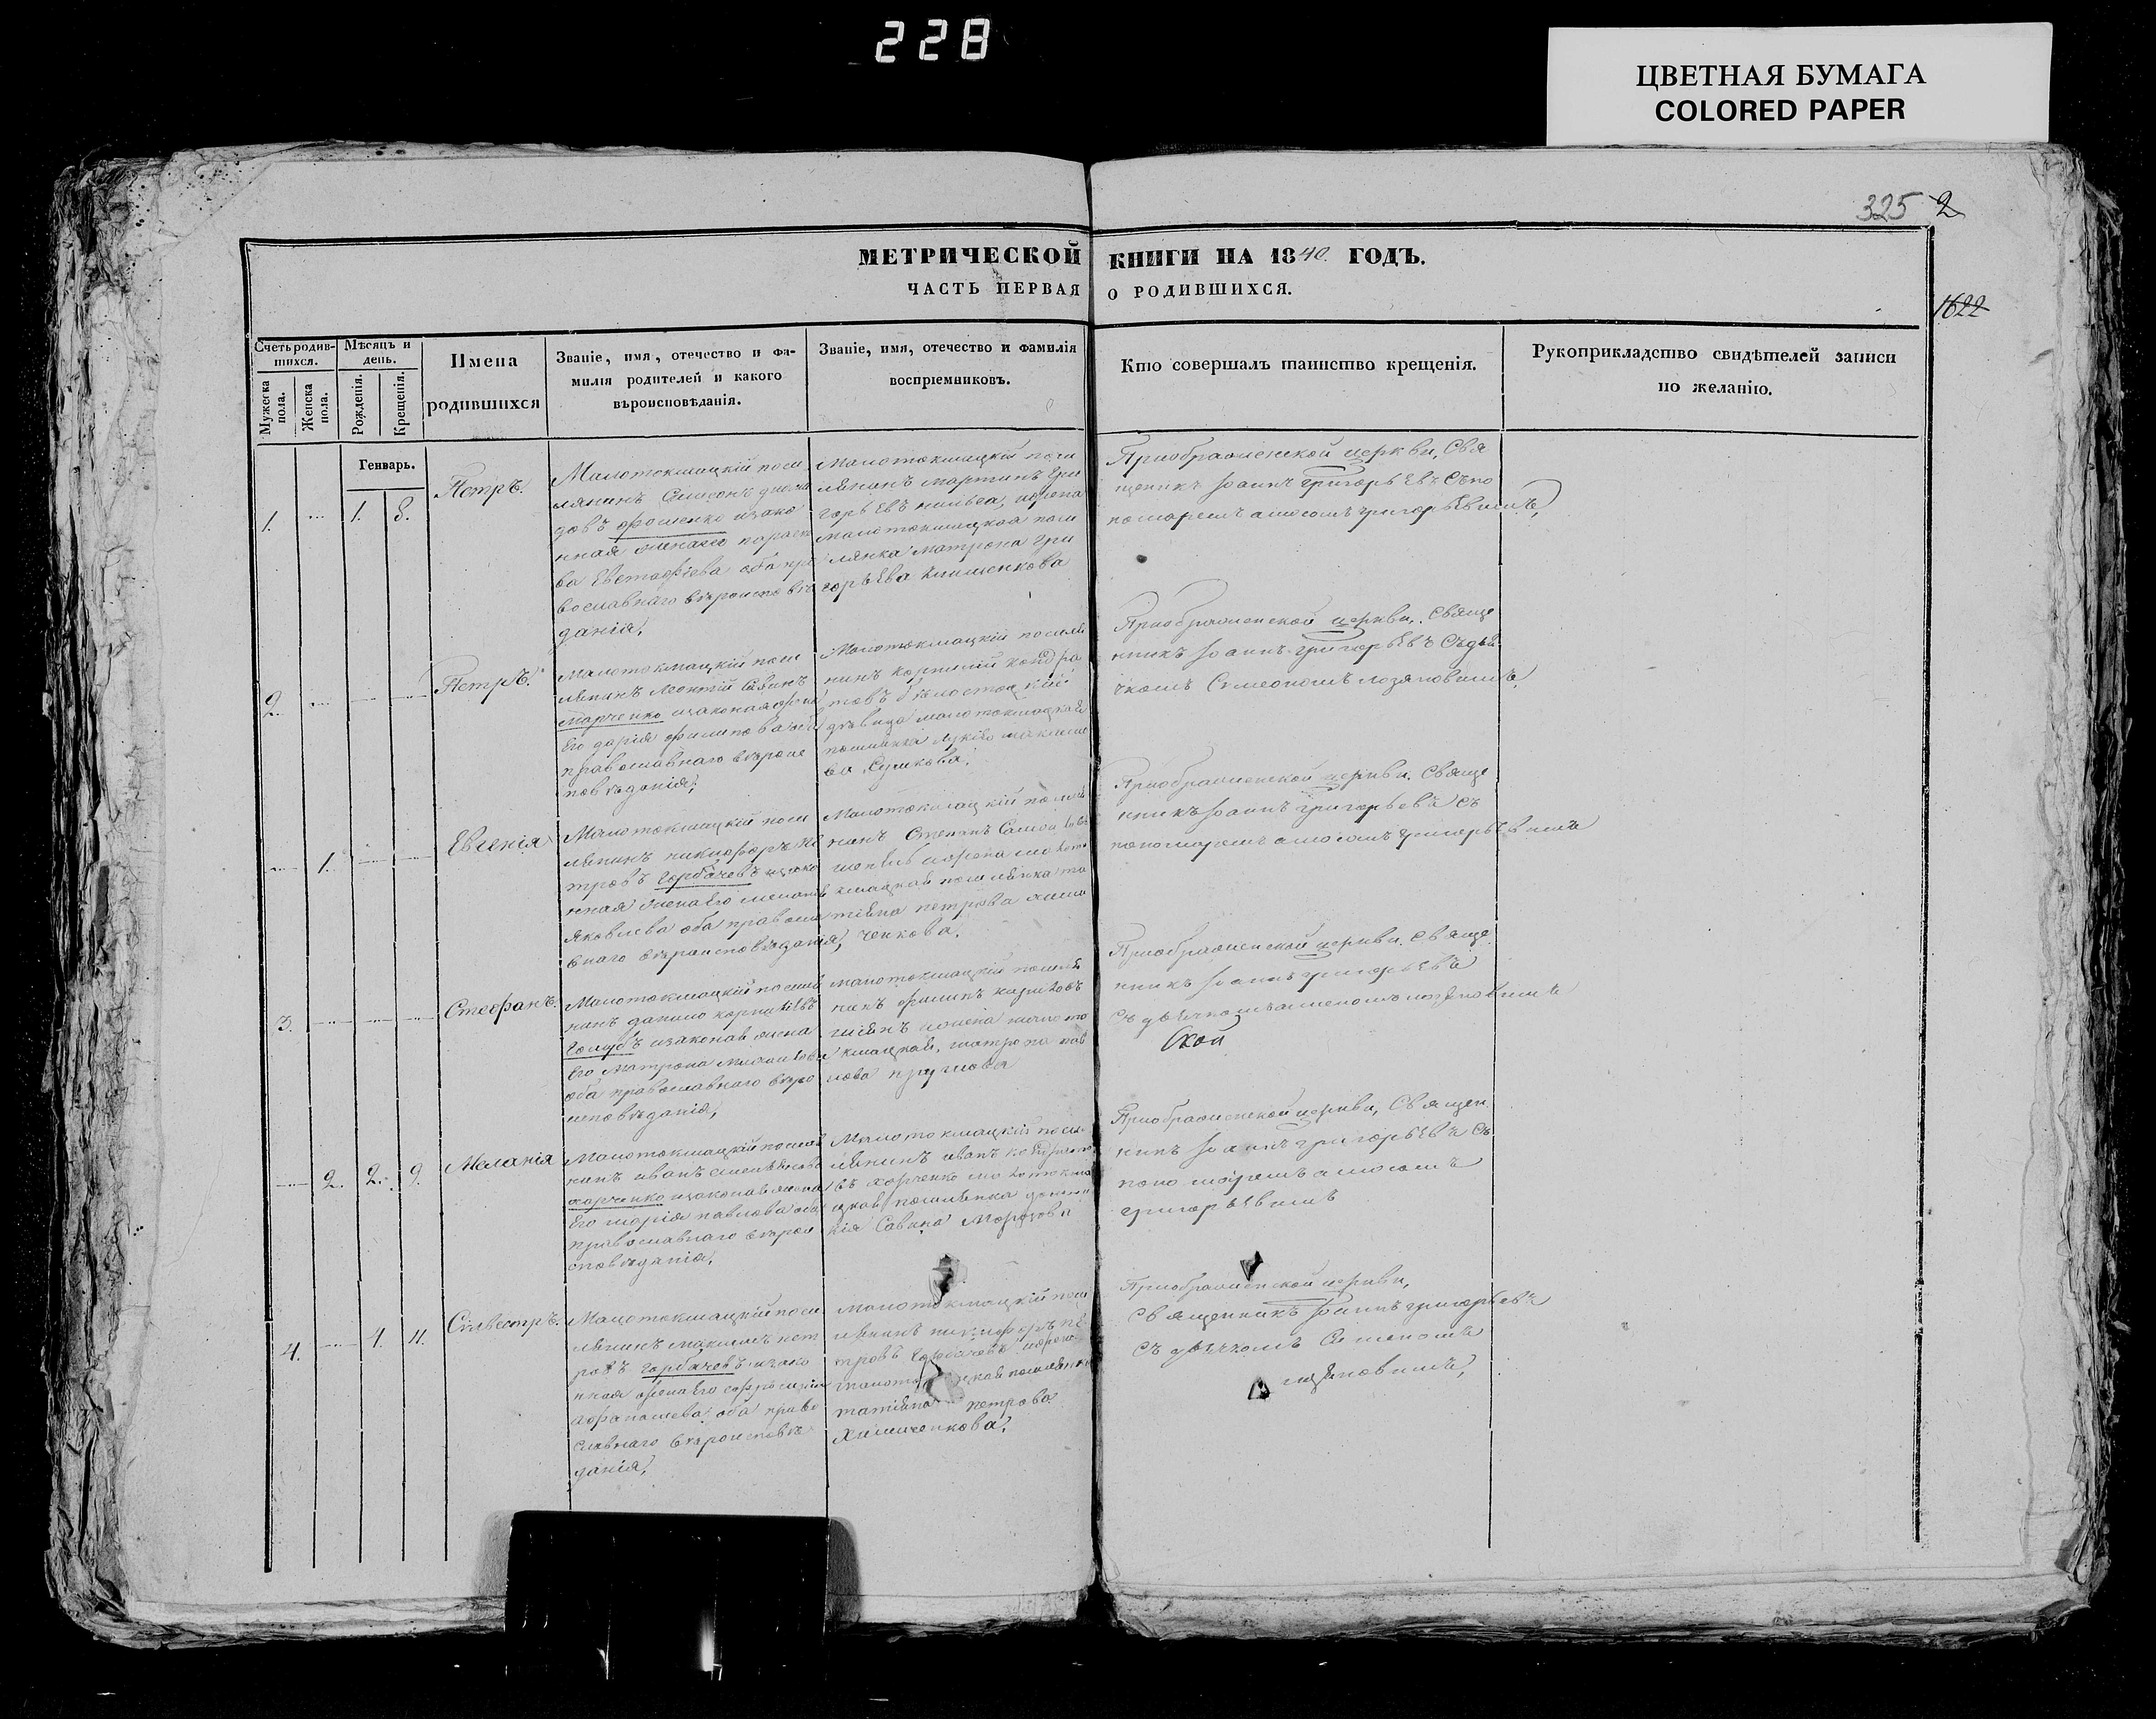 228
ЦВЕТНАЯ БУМАГА
COLORED PAPER
325 2
МЕТРИЧЕСКОЙ КНИГИ НА 1840. ГОДЪ.
ЧАСТЬ ПЕРВАЯ О РОДИВШИХСЯ.
1622
Счетъ родив-
шихся.
Мужеска
пола.
Женска
пола.
Мѣсяцъ и
день.
Рожденія.
Крещенія.
Имена
родившихся
Званіе, имя, отечество и фа-
милія родителей и какого
вѣроисповѣданія.
Званіе, имя, отечество и фамилія
воспріемниковъ.
Кто совершалъ таинство крещенія.
Рукоприкладство свидѣтелей записи
по желанію.
Генварь.
1. 1. 8.
Петръ.
Малотокмацкій посе
лянинъ Симеонъ
довъ фоменко изако
нная жена его параск
ва Евстафіева оба пра
вославнаго вѣроисповѣ
данія,
Малотокмацкій посе
лянинъ мартинъ Гри
горьевъ
малотокмацкая посе
лянка матрона Гри
горьева
Приображенской церкви, Свя
щеникъ Іоаннъ григорьевъ Съ по
номаремъ амосомъ григорьевимъ,
2.
Петръ.
малотокмацкій посе
лянинъ Леонтій Савинъ
марченко изаконая жена
Его дарія филипова оба
православнаго вѣроис
повѣданія,
Малотокмацкій поселя
нинъ корнилій кондра
товъ бѣлостоцкій
дѣвица малотокмацкая
ва Сушкова,
Приображенской церкви, Свяще
нникъ Іоаннъ григорьевъ Съ дья
чкомъ Симеономъ лозяновимъ,
1.
Евгенія
Малотокмацкій посе
лянинъ никифоръ пе
тровъ Горбачевъ изако
нная жена Его меланія
Яковлева оба правосла
внаго вѣроисповѣданія,
Малотокмацкій поселя
нинъ Степанъ
кмацкая поселянка та
тіяна петрова химе
ченкова.
Приображенской церкви, Свяще
нникъ Іоаннъ григорьевъ съ
пономаремъ амосомъ григорьевимъ
3.
Стефанъ.
Малотокмацкій поселя
нинъ данило корнилієвъ
Голубъ изаконая жена
Его Матрона Михаилова
оба православнаго вѣро
исповѣданія,
малотокмацкій поселя
нинъ филипъ
кмацкая, матрона пав
лова
Приображенской церкви, Свяще
нникъ Іоаннъ григорьевъ
съ дьячкомъ
2. 2. 9.
Меланія
Малотокмацкій поселя
нинъ иванъ
харченко изаконая жена
Его марія павлова оба
православнаго вѣрои
сповѣданія,
Малотокмацкій посе
лянинъ иванъ кондрато
въ харченко малотокма
цкая поселянка
кія Савина Морозова
Приображенской церкви, Священ
никъ Іоаннъ григорьевъ съ
пономаремъ амосомъ
григорьевимъ
4. 4. 11.
Силвестръ.
Малотокмацкій посе
лянинъ максимъ пет
ровъ Горбачевъ изако
нная жена Его
Афанасиева оба право
славнаго вѣроисповѣ
данія,
малотокмацкій посе
лянинъ никифоръ пе
тровъ Горбачевъ
поселянка
татіяна петрова
Химиченкова,
Приображенской церкви,
Священникъ Іоаннъ григорьевъ
съ дьячкомъ Симеономъ